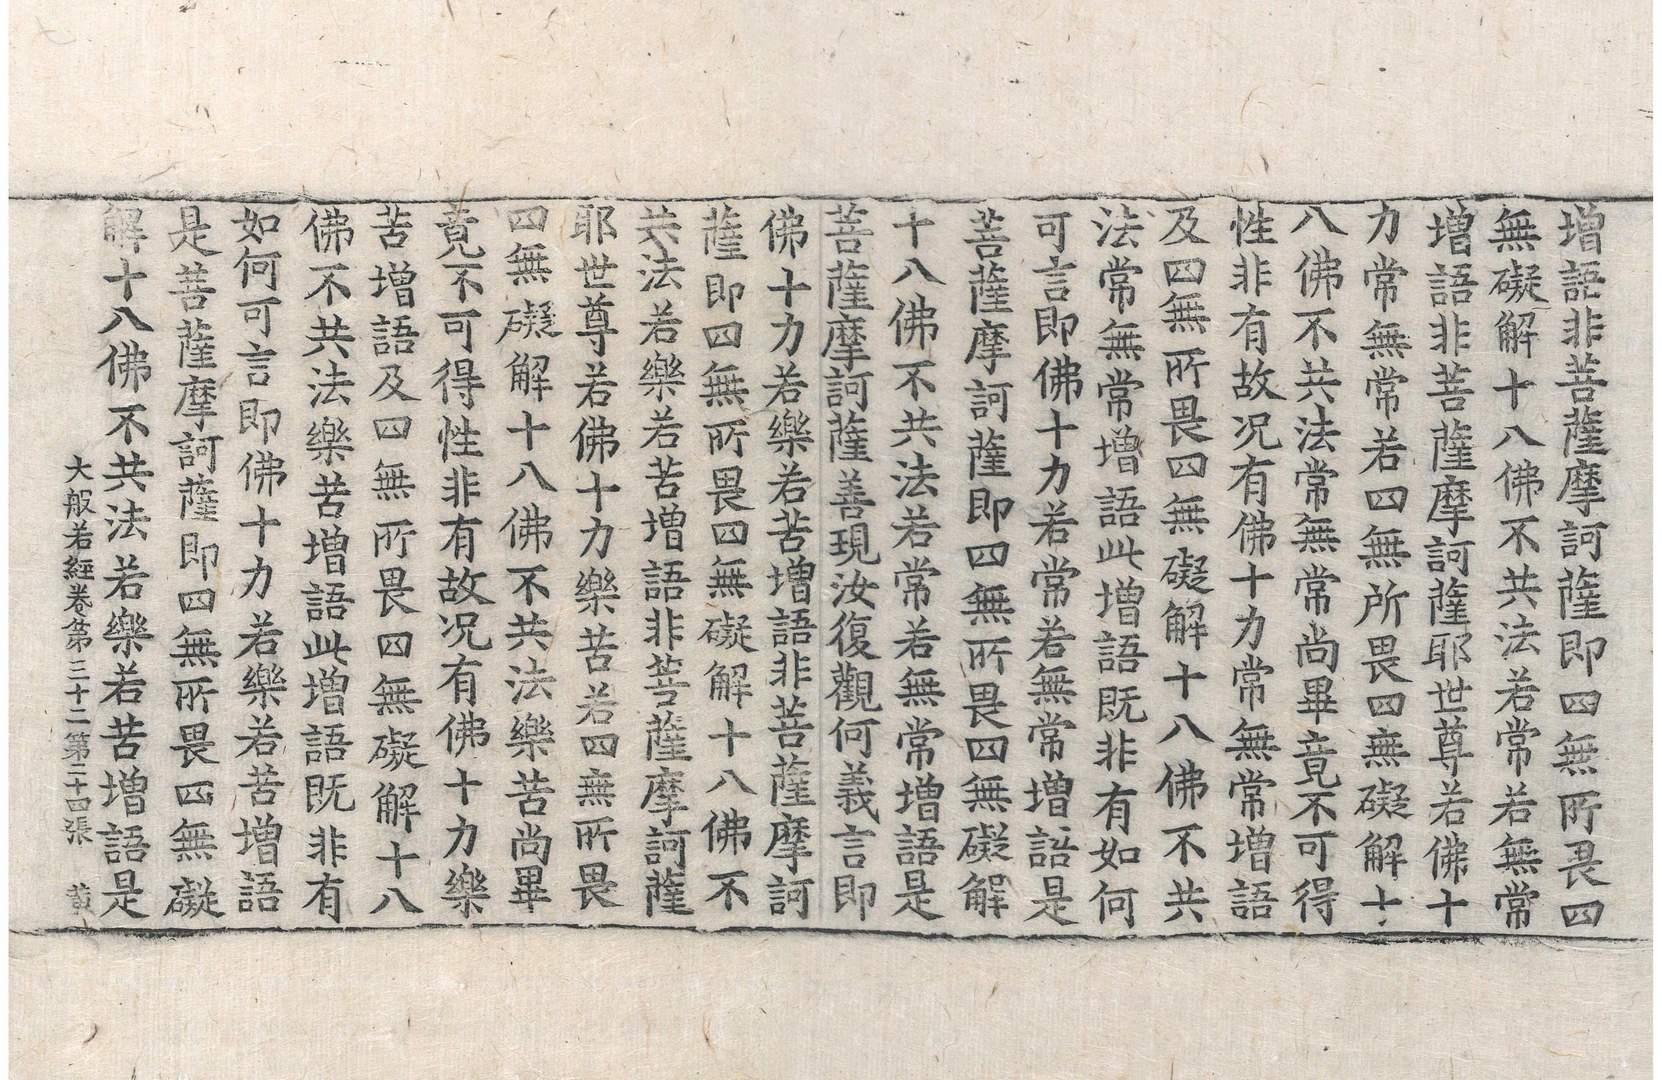 增語非菩薩摩訶薩即四無所畏四
無礙解十八佛不共法若常若無常
增語非菩薩摩訶薩耶世尊若佛十
力常無常若四無所畏四無礙解十
八佛不共法常無常尚畢竟不可得
性非有故况有佛十力常無常增語
及四無所畏四無礙解十八佛不共
法常無常增語此增語既非有如何
可言即佛十力若常若無常增語是
菩薩摩訶薩即四無所畏四無礙解
十八佛不共法若常若無常增語是
菩薩摩訶薩善現汝復觀何義言即
佛十力若樂若苦增語非菩薩摩訶
薩即四無所畏四無礙解十八佛不
共法若樂若苦增語非菩薩摩訶薩
耶世尊若佛十力樂苦若四無所畏
四無礙解十八佛不共法樂苦尚畢
竟不可得性非有故况有佛十力樂
苦增語及四無所畏四無礙解十八
佛不共法樂苦增語此增語既非有
如何可言即佛十力若樂若苦增語
是菩薩摩訶薩即四無所畏四無礙
解十八佛不共法若樂若苦增語是
大般若經卷第三十二第二十四張